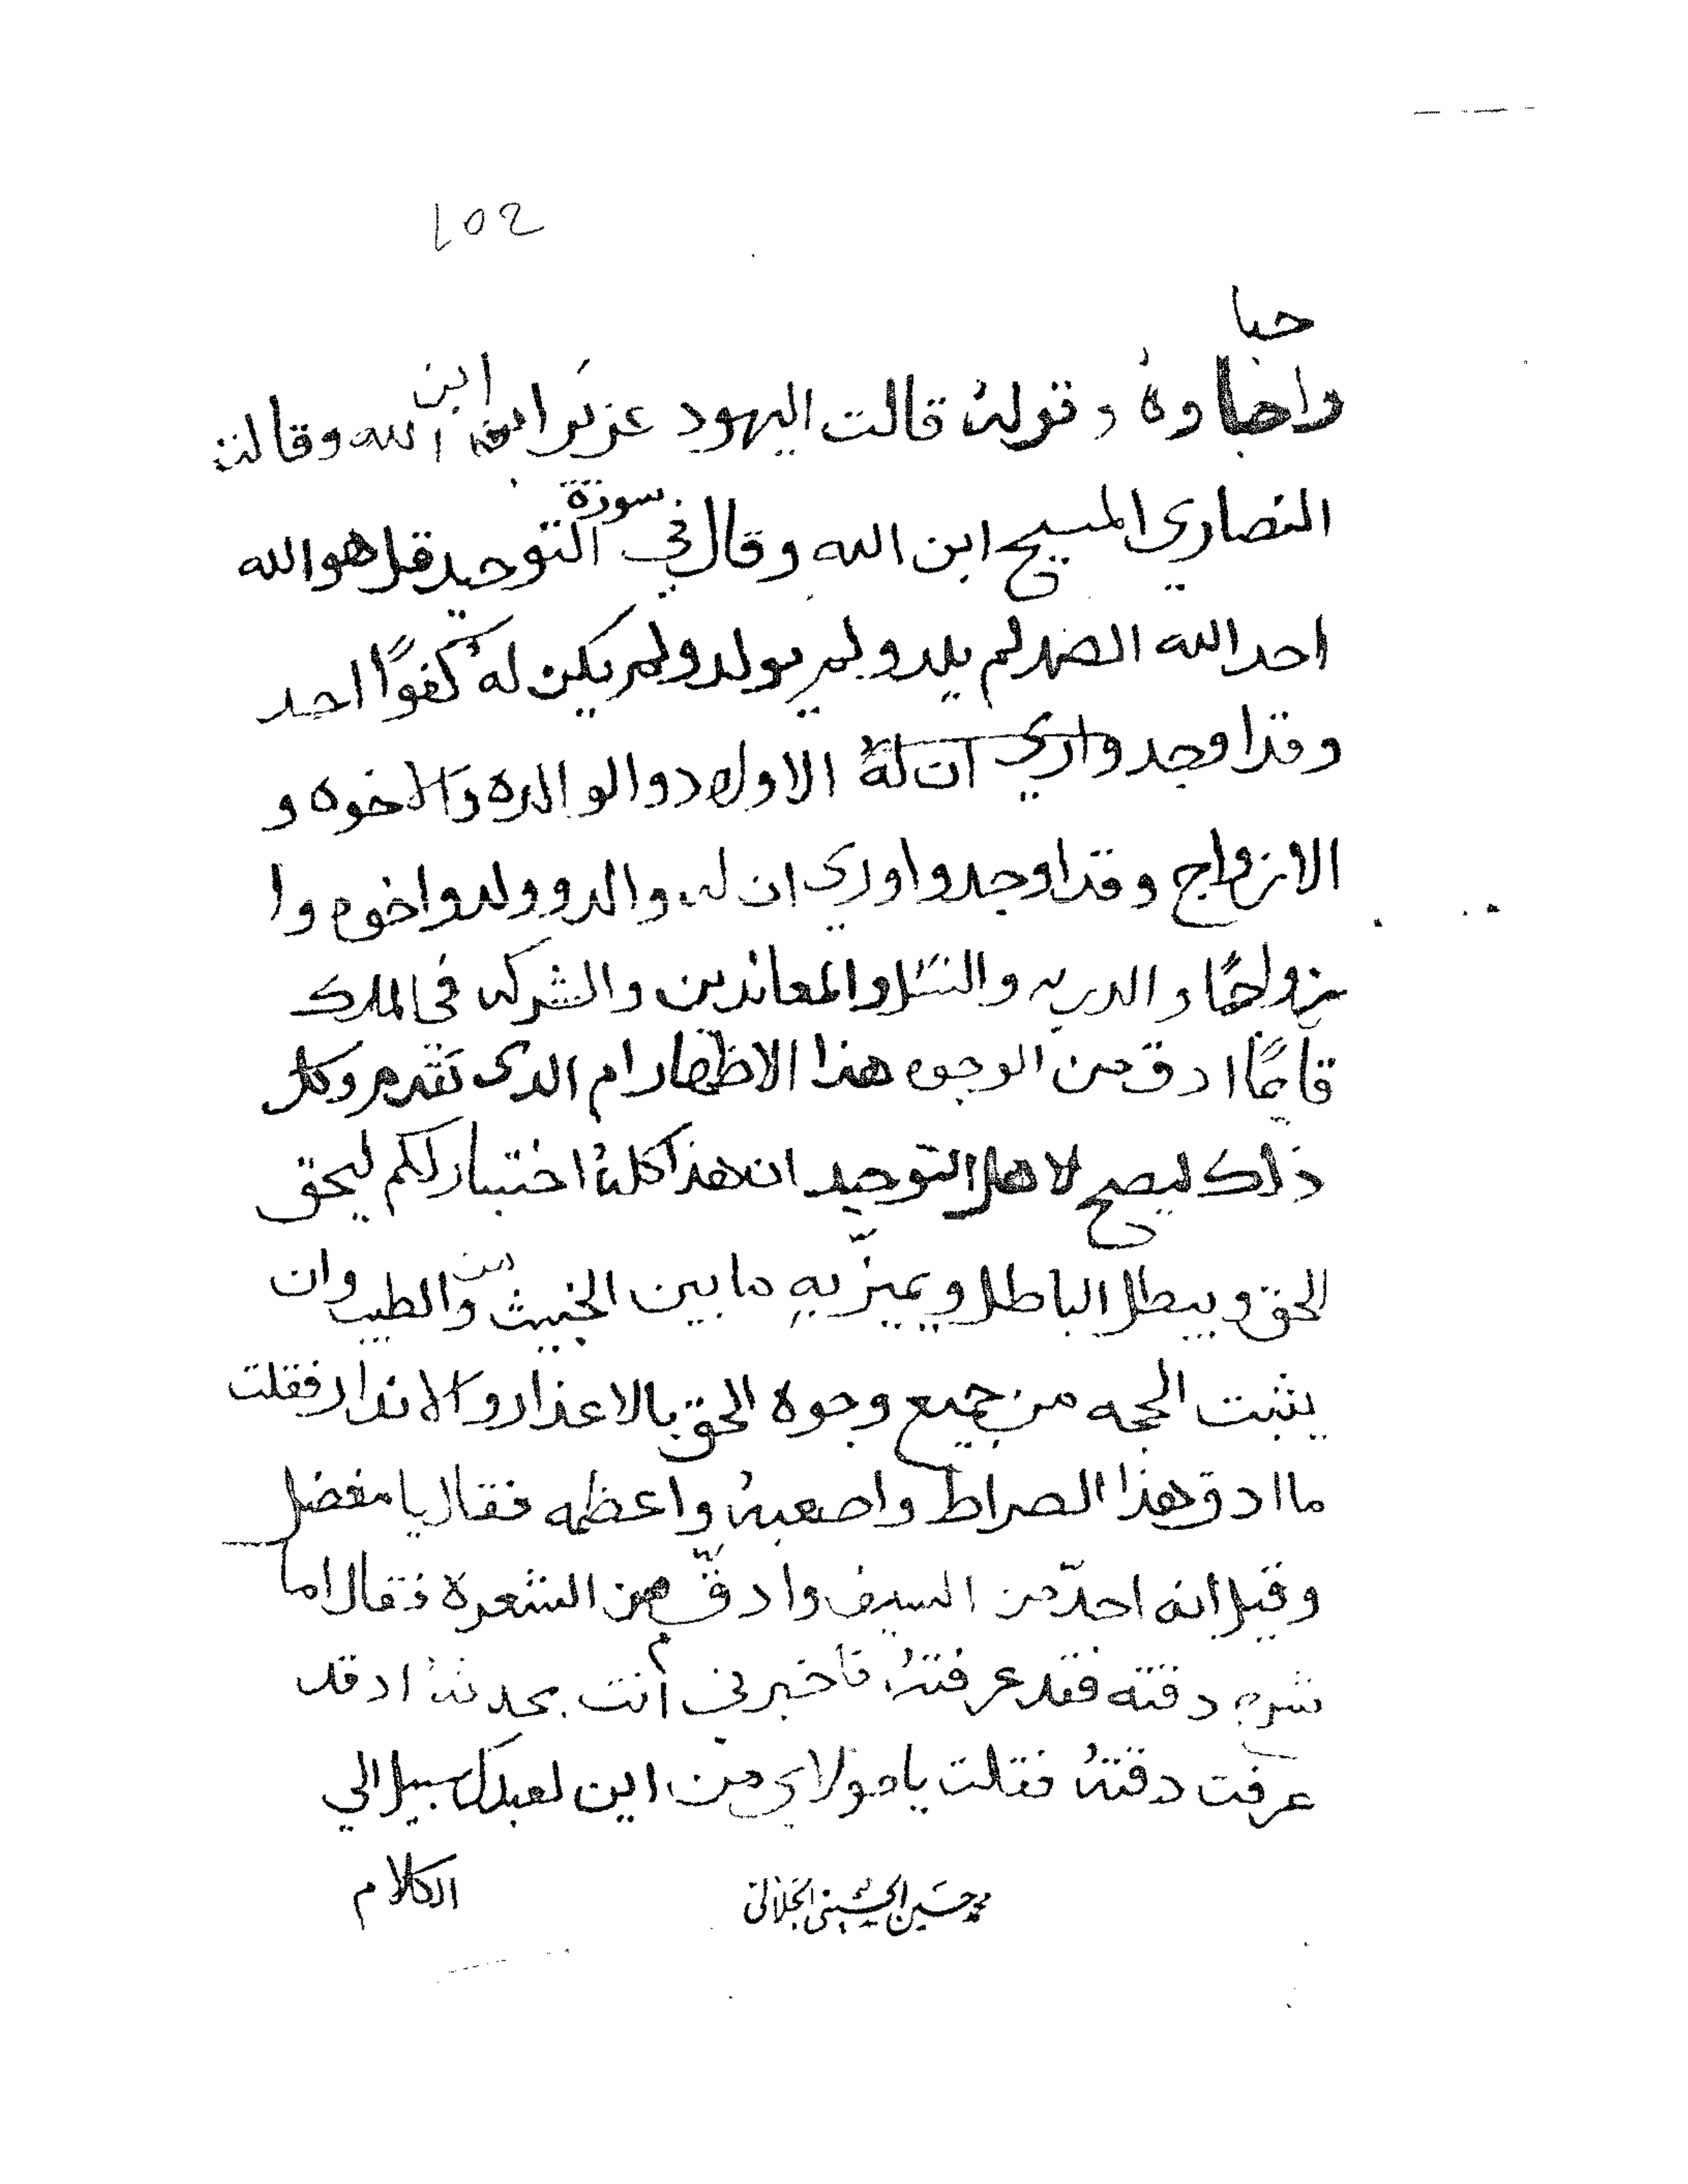 102
حبا
واحباوهُ وقولهُ قالت اليهود عزيَر ابن الله وقالت
النصاري المسيح ابن الله وقال في سورة التوحيد قل هو الله
احد الله الصمد لم يلد ولم يولد ولم يكن لهُ كفوًا احد
وقد اوجد واري ان لهُ الاولاد والوالده والاخوه و
الازواج وقد اوجد واوري ان له والد وولد واخوه وا
زواجًا والدريه والنسل والمعاندين والشركه في الملك
قايمًا ادق من الوجوه هذا الاظهار ام الدى تقدم وكل
ذلك ليصح لاهل التوحيد ان هذا كلهُ اختبار لكم ليحق
الحق ويبطل الباطل ويميّز بهِ ما بين الخبيث من والطيب وان
يثبت الحجه من جميع وجوه الحق بالاعذار والاندار فقلت
ما ادق هذا الصراط واصعبهُ واعظمه فقال يا مفضل
وقيل أنه احدّ من السيف وادقّ من الشعرة فقال اما
دقته فقد عرفتهُ فاخبرني أنت قد
عرفت دقتهُ فقلت يا مولاي من اين لعبدك سبيل الي
الكلام
محمد حسين الحسيني الجلالي